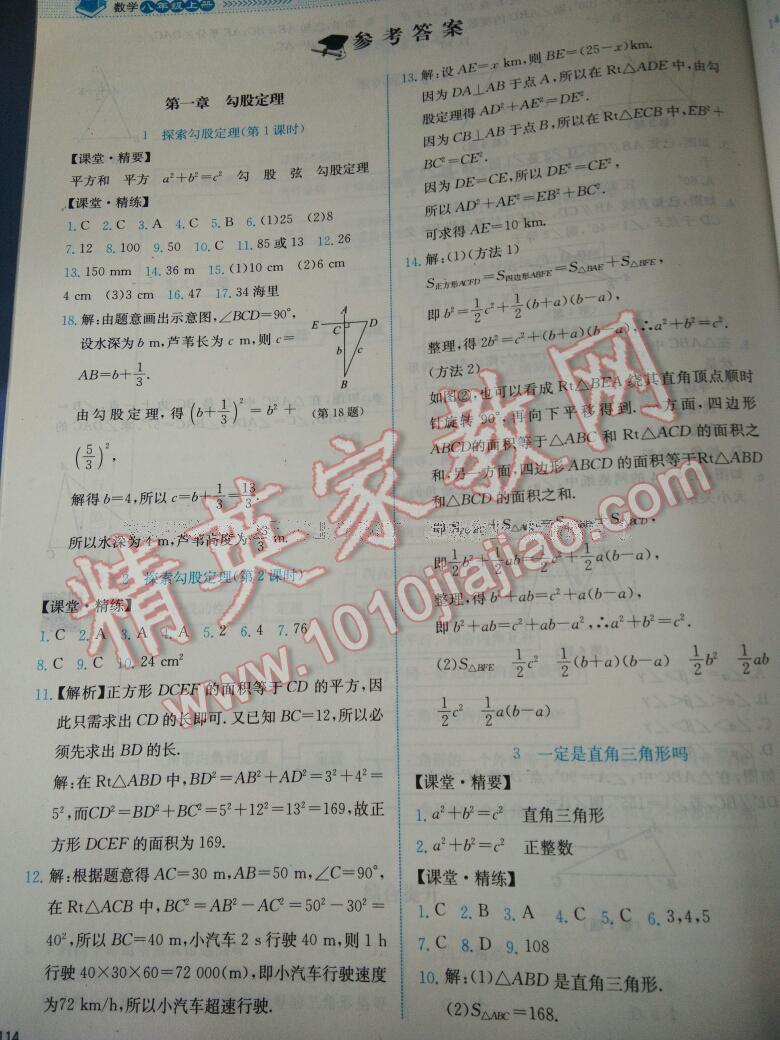 数学八年级上册
参考答案
第一章 勾股定理
1 探索勾股定理(第1课时)
【课堂·精要】
平方和 平方 a²+b²=c² 勾 股 弦 勾股定理
【课堂·精练】
1.C 2.C 3.A 4.C 5.B 6.(1)25 (2)8
7.12 8.100 9.50 10.C 11.85或13 12.26
13.150 mm 14.36 m 15.(1)10 cm (2)6 cm
4 cm (3)3 cm 16.47 17.34海里
18.解:由题意画出示意图,∠BCD=90°,
设水深为b m,芦苇长为c m,则c=
AB=b+1/3.
由勾股定理,得(b+1/3)²=b²+
(5/3)²,
解得b=4,所以c=b+1/3=13/3.
所以水深为4 m,芦苇高度为13/3 m.
A
E C D
b c
B
(第18题)
2 探索勾股定理(第2课时)
【课堂·精练】
1.C 2.A 3.A 4.A 5.2 6.4 7.76
8.C 9.C 10.24 cm²
11.【解析】正方形DCEF的面积等于CD的平方,因
此只需求出CD的长即可.又已知BC=12,所以必
须先求出BD的长.
解:在Rt△ABD中,BD²=AB²+AD²=3²+4²=
5²,而CD²=BD²+BC²=5²+12²=13²=169,故正
方形DCEF的面积为169.
12.解:根据题意得AC=30 m,AB=50 m,∠C=90°,
在Rt△ACB中,BC²=AB²-AC²=50²-30²=
40²,所以BC=40 m,小汽车2 s行驶40 m,则1 h
行驶40×30×60=72 000(m),即小汽车行驶速度
为72 km/h,所以小汽车超速行驶.
114
13.解:设AE=x km,则BE=(25-x)km.
因为DA⊥AB于点A,所以在Rt△ADE中,由勾
股定理得AD²+AE²=DE².
因为CB⊥AB于点B,所以在Rt△ECB中,EB²+
BC²=CE².
因为DE=CE,所以DE²=CE²,
所以AD²+AE²=EB²+BC².
可求得AE=10 km.
14.解:(1)(方法1)
S正方形ACFD=S四边形ABFE=S△BAE+S△BFE,
即b²=1/2c²+1/2(b+a)(b-a),
整理,得2b²=c²+(b+a)(b-a),∴a²+b²=c².
(方法2)
如图②,也可以看成Rt△BEA绕其直角顶点顺时
针旋转90°,再向下平移得到.一方面,四边形
ABCD的面积等于△ABC和Rt△ACD的面积之
和,另一方面,四边形ABCD的面积等于Rt△ABD
和△BCD的面积之和.
即1/2b²+1/2ab=1/2c²+1/2a(b-a),
整理,得b²+ab=c²+a(b-a),
即b²+ab=c²+ab-a²,∴a²+b²=c².
(2)S△BFE 1/2c² 1/2(b+a)(b-a) 1/2b² 1/2ab
1/2c² 1/2a(b-a)
3 一定是直角三角形吗
【课堂·精要】
1.a²+b²=c² 直角三角形
2.a²+b²=c² 正整数
【课堂·精练】
1.C 2.B 3.A 4.C 5.C 6.3,4,5
7.C 8.D 9.108
10.解:(1)△ABD是直角三角形.
(2)S△ABC=168.
精英家教网
www.1010jiajiao.com